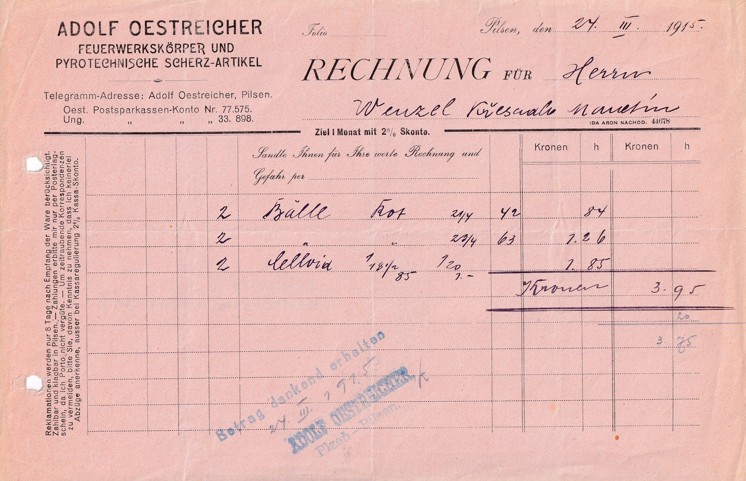 ADOLF OESTREICHER
FEUERWERKSKÖRPER UND
PYROTECHNISCHE SCHERZ-ARTIKEL
Telegramm-Adresse: Adolf Oestreicher, Pilsen.
Oest. Postsparkassen-Konto Nr. 77.575.
Ung. „ „ „ 33.898.
Folio
Pilsen, den 24. III. 1915.
RECHNUNG FÜR Herrn
Wenzel
IDA ARON NACHOD. 44078
Ziel 1 Monat mit 2% Skonto.
Sandte Ihnen für Ihre werte Rechnung und
Gefahr per
Kronen h Kronen h
2 Bälle Rot 21/4 42 84
2 „ „ 23/4 63 1.26
2 1.85
Kronen 3.95
20
3 75
Betrag dankend erhalten
24. III. 1915
ADOLF OESTREICHER
Plzeň - Pilsen.
Reklamationen werden nur 8 Tage nach Empfang der Ware berücksichtigt.
Zahlbar und klagbar in Pilsen. — Zahlungen erbitte mir nur per Posterlag-
schein, da ich Porto nicht vergüte. Um zeitraubende Korrespondenzen
zu vermeiden, bitte Sie, davon Kenntnis zu nehmen, dass ich keinerlei
Abzüge anerkenne, ausser bei Kassaregulierung 2% Kassa-Skonto.